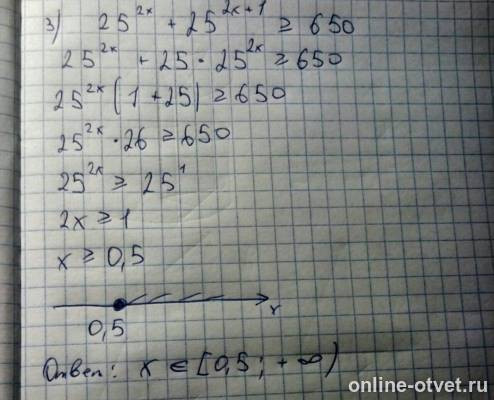 3) 25^{2x} + 25^{2x+1} ≥ 650
25^{2x} + 25 · 25^{2x} ≥ 650
25^{2x} (1 + 25) ≥ 650
25^{2x} · 26 ≥ 650
25^{2x} ≥ 25^{1}
2x ≥ 1
x ≥ 0,5
x
0,5
Ответ: x ∈ [0,5; +∞)
online-otvet.ru